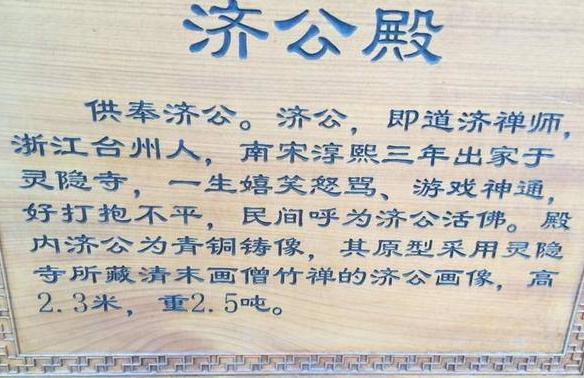 济公殿
供奉济公。济公，即道济禅师，
浙江台州人，南宋淳熙三年出家于
灵隐寺，一生嬉笑怒骂、游戏神通，
好打抱不平，民间呼为济公活佛。殿
内济公为青铜铸像，其原型采用灵隐
寺所藏清末画僧竹禅的济公画像，高
2.3米，重2.5吨。